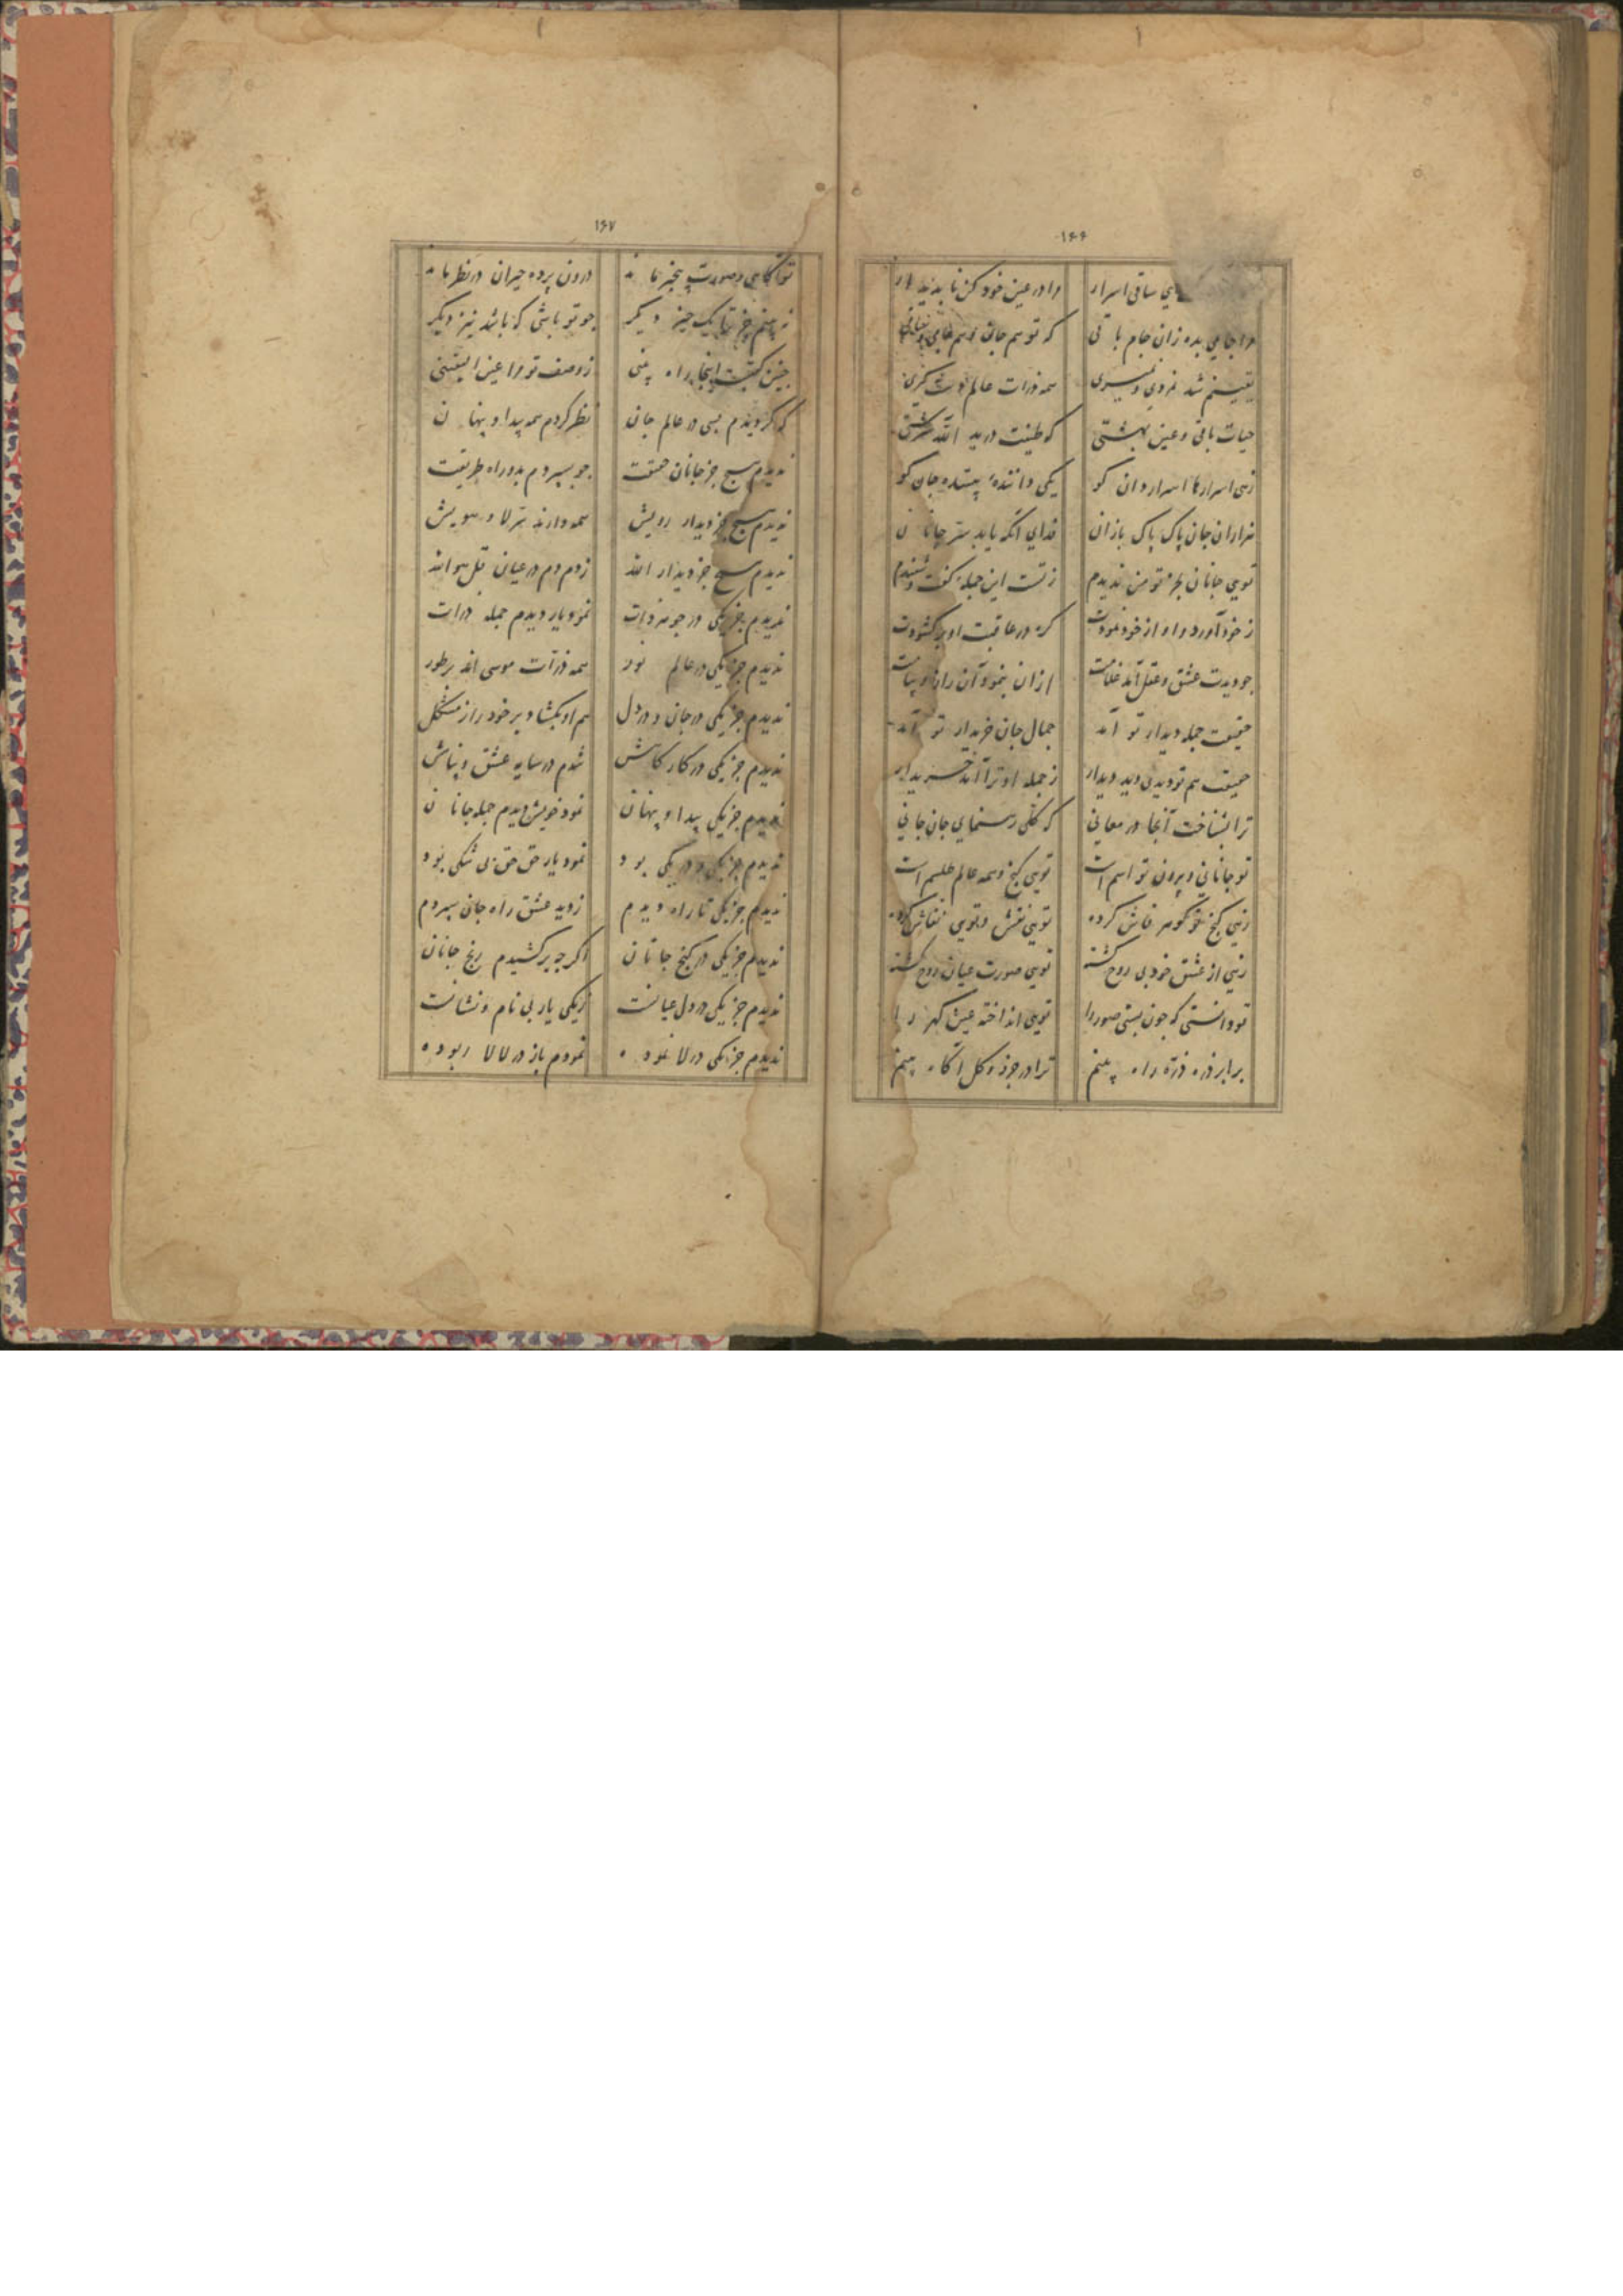 ۱۶۶
ساقی اسرار مرا در عین خود کن ناپدیدار
مرا جامی بده زان جام باقی که تو هم جان و هم
یقینم شد نه دی و نمیری همه ذرات عالم
حیات باقی و عین بهشتی که طینت در ید الله سرشتی
زهی اسرارها اسرار دان کو یکی داننده پیننده جان کو
هزاران جان پاک پاک بازان فدای آنکه یابد سر جانان
تویی جانان بجز تو من ندیدم ز تست این جمله گفت و شنیدم
ز خود آورد و او از خود نمودت که در عاقبت او بر کشودت
چو دیدت عشق و عقل آمد غلامت از آن بنمود آن راز و پیامت
حقیقت جمله دیدار تو آمد جمال جان خریدار تو آمد
حقیقت هم تو دیدی دید دیدار ز جمله او ترا آمد خریدار
ترا بشناخت آنجا در معانی که کلی رهنمای جان جانی
تو جانانی و بیرون تو اسم است تویی کنج و همه عالم طلسم است
زهی کنج تو کوهر فاش کرده تویی نقش و تویی نقاش کرده
زهی از عشق خود بی روح کشته تویی صورت عیان روح کشته
تو دانستی که چون بستی صور را تویی انداخته عین کهر را
برابر ذره ذره راه پینم ترا در جزو و کل آکاه پینم
۱۶۷
تو آکاهی و صورت پیخبر ماند درون پرده حیران در نظر ماند
نه پینم جز تو یک چیز دیکر چو تو باشی که باشد نیز دیکر
چنین کفتست اینجا راه پینی ز وصف تو مرا عین الیقینی
که کردیدم بسی در عالم جان نظر کردم همه پیدا و پنهان
ندیدم هیچ جز جانان حقیقت چو بسپردم بدو راه طریقت
ندیدم هیچ جز دیدار رویش همه دارند سر لا و هویش
ندیدم هیچ جز دیدار الله زدم دم در عیان قل هو الله
ندیدم جز یکی در جوهر ذات نمود یار دیدم جمله ذرات
ندیدم جز یکی در عالم نور همه ذرات موسی اند بر طور
ندیدم جز یکی در جان و در دل هم او بکشاد بر خود راز مشکل
ندیدم جز یکی در کار کاهش شدم در سایه عشق و پناهش
ندیدم جز یکی پیدا و پنهان نمود خویش دیدم جمله جانان
ندیدم جز یکی و در یکی بود نمود یار حق حق بی شکی بود
ندیدم جز یکی تا راه دیدم ز دید عشق راه جان سپردم
ندیدم جز یکی در کنج جانان اکر چه برکشیدم رنج جانان
ندیدم جز یکی در دل عیانت یکی یار بی نام و نشانت
ندیدم جز یکی در لا نموده نمودم باز در لالا ربوده